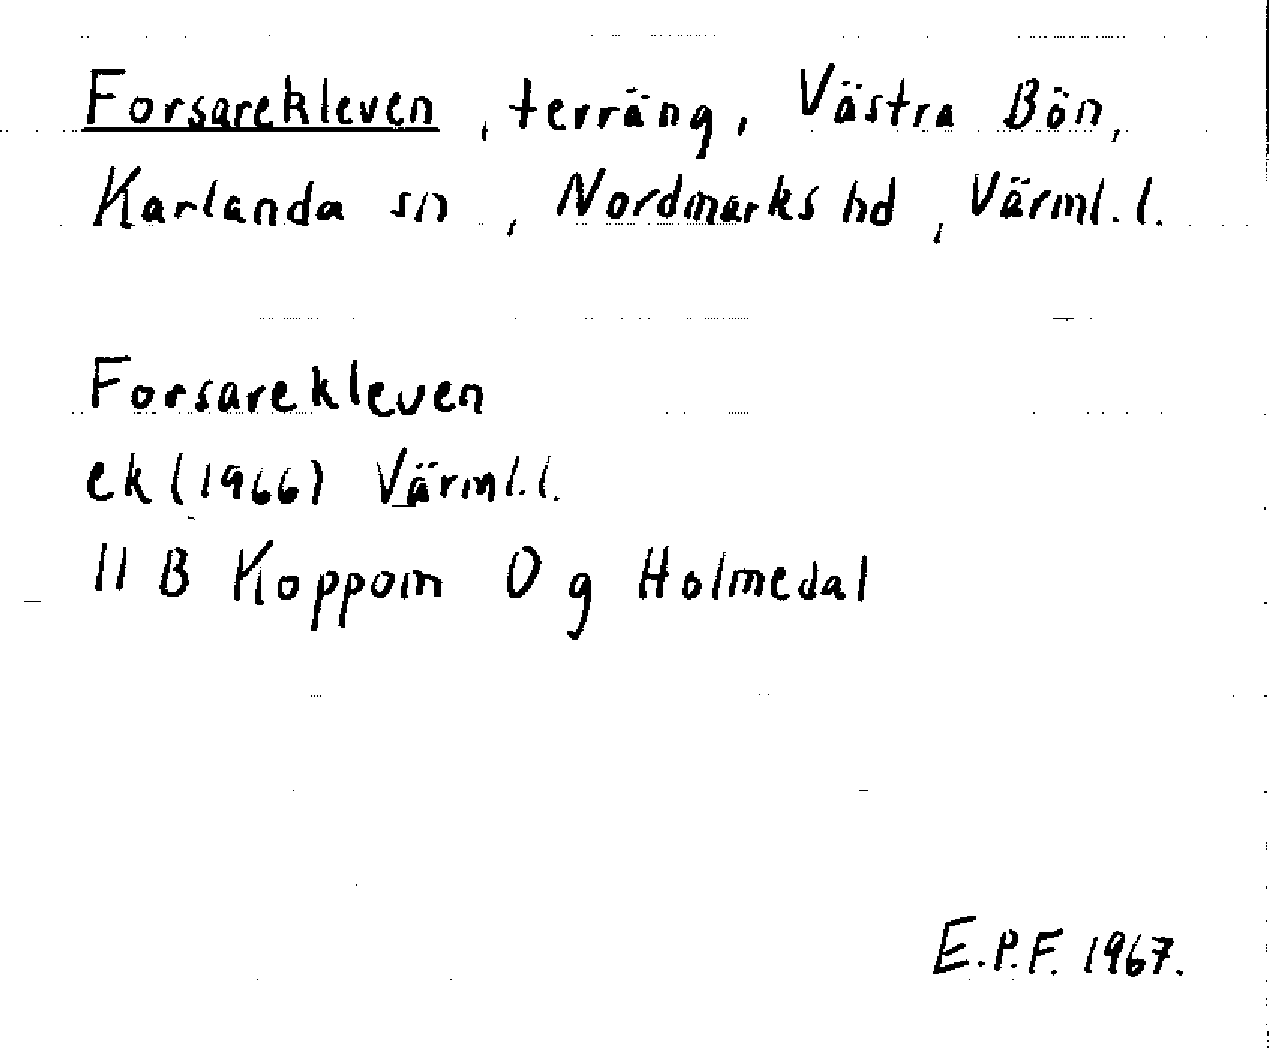 Forsarekleven, terräng, Västra Bön,
Karlanda sn, Nordmarks hd, Värml. l.
Forsarekleven
ek (1966) Värml. l.
11 B Koppom 0 g Holmedal
E.P.F. 1967.